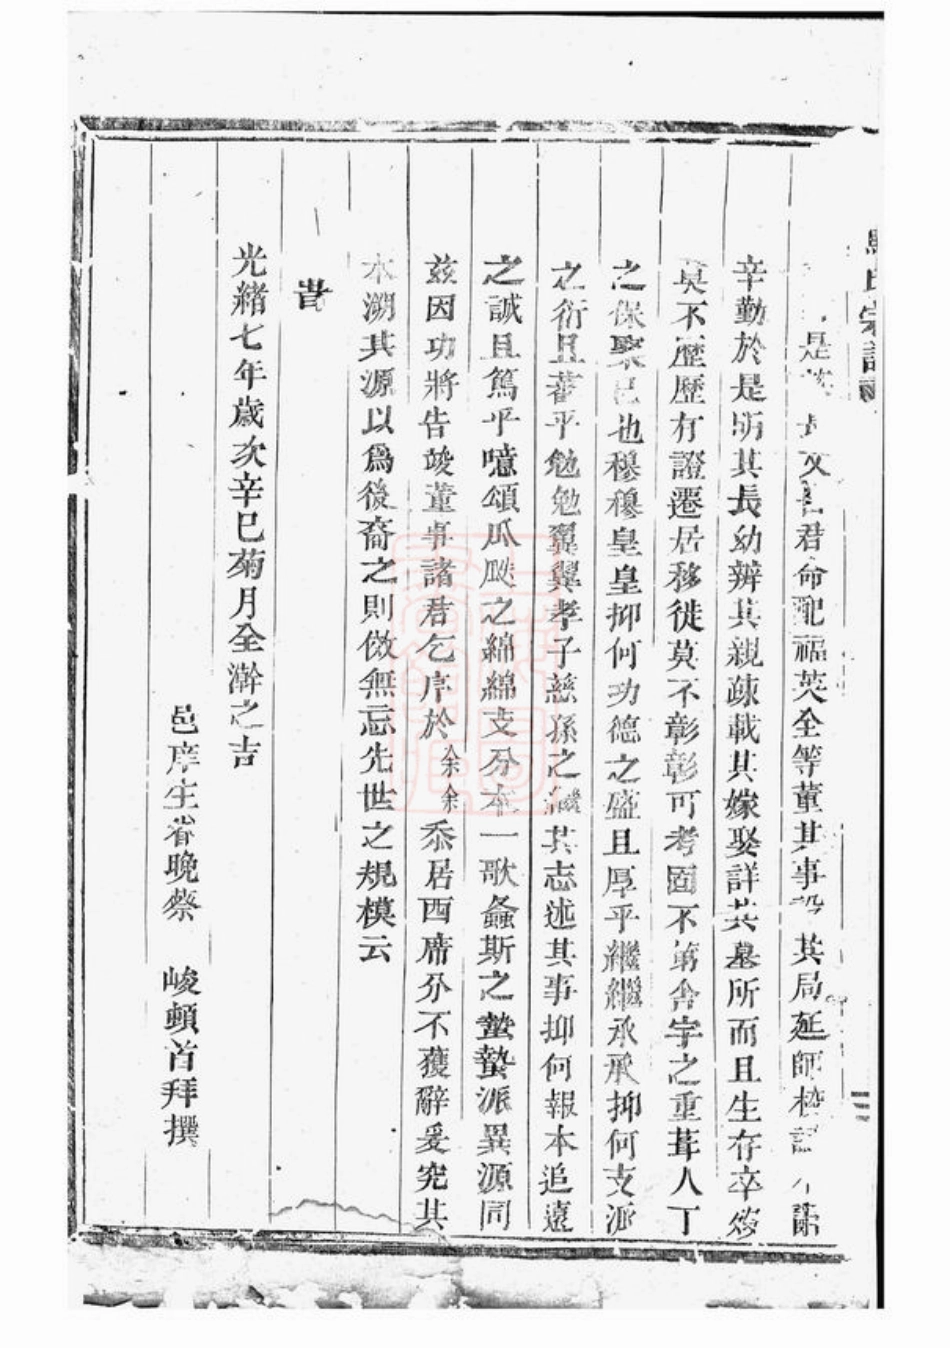 氏宗譜
是 長文 君命配福英全等董其事 其局延師 
辛勤於是明其長幼辨其親疎載其嫁娶詳其墓所而且生存卒塟
莫不歷歷有證遷居移徙莫不彰彰可考固不第舍宇之重葺人丁
之保聚已也穆穆皇皇抑何功德之盛且厚乎繼繼承承抑何支派
之衍且蕃乎勉勉翼翼孝子慈孫之繼其志述其事抑何報本追遠
之誠且篤乎噫頌瓜瓞之綿綿支分本一歌螽斯之蟄蟄派異源同
茲因功將告竣董事諸君乞序於余余忝居西席分不獲辭爰究其
本溯其源以爲後裔之則俾無忘先世之規模云
旹
光緒七年歲次辛巳菊月全澣之吉
邑庠生省晚蔡 峻頓首拜撰